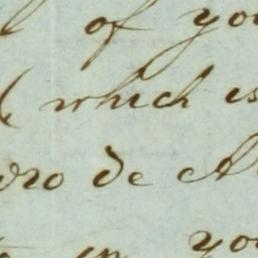 of yo
which is
dro de A
in yo